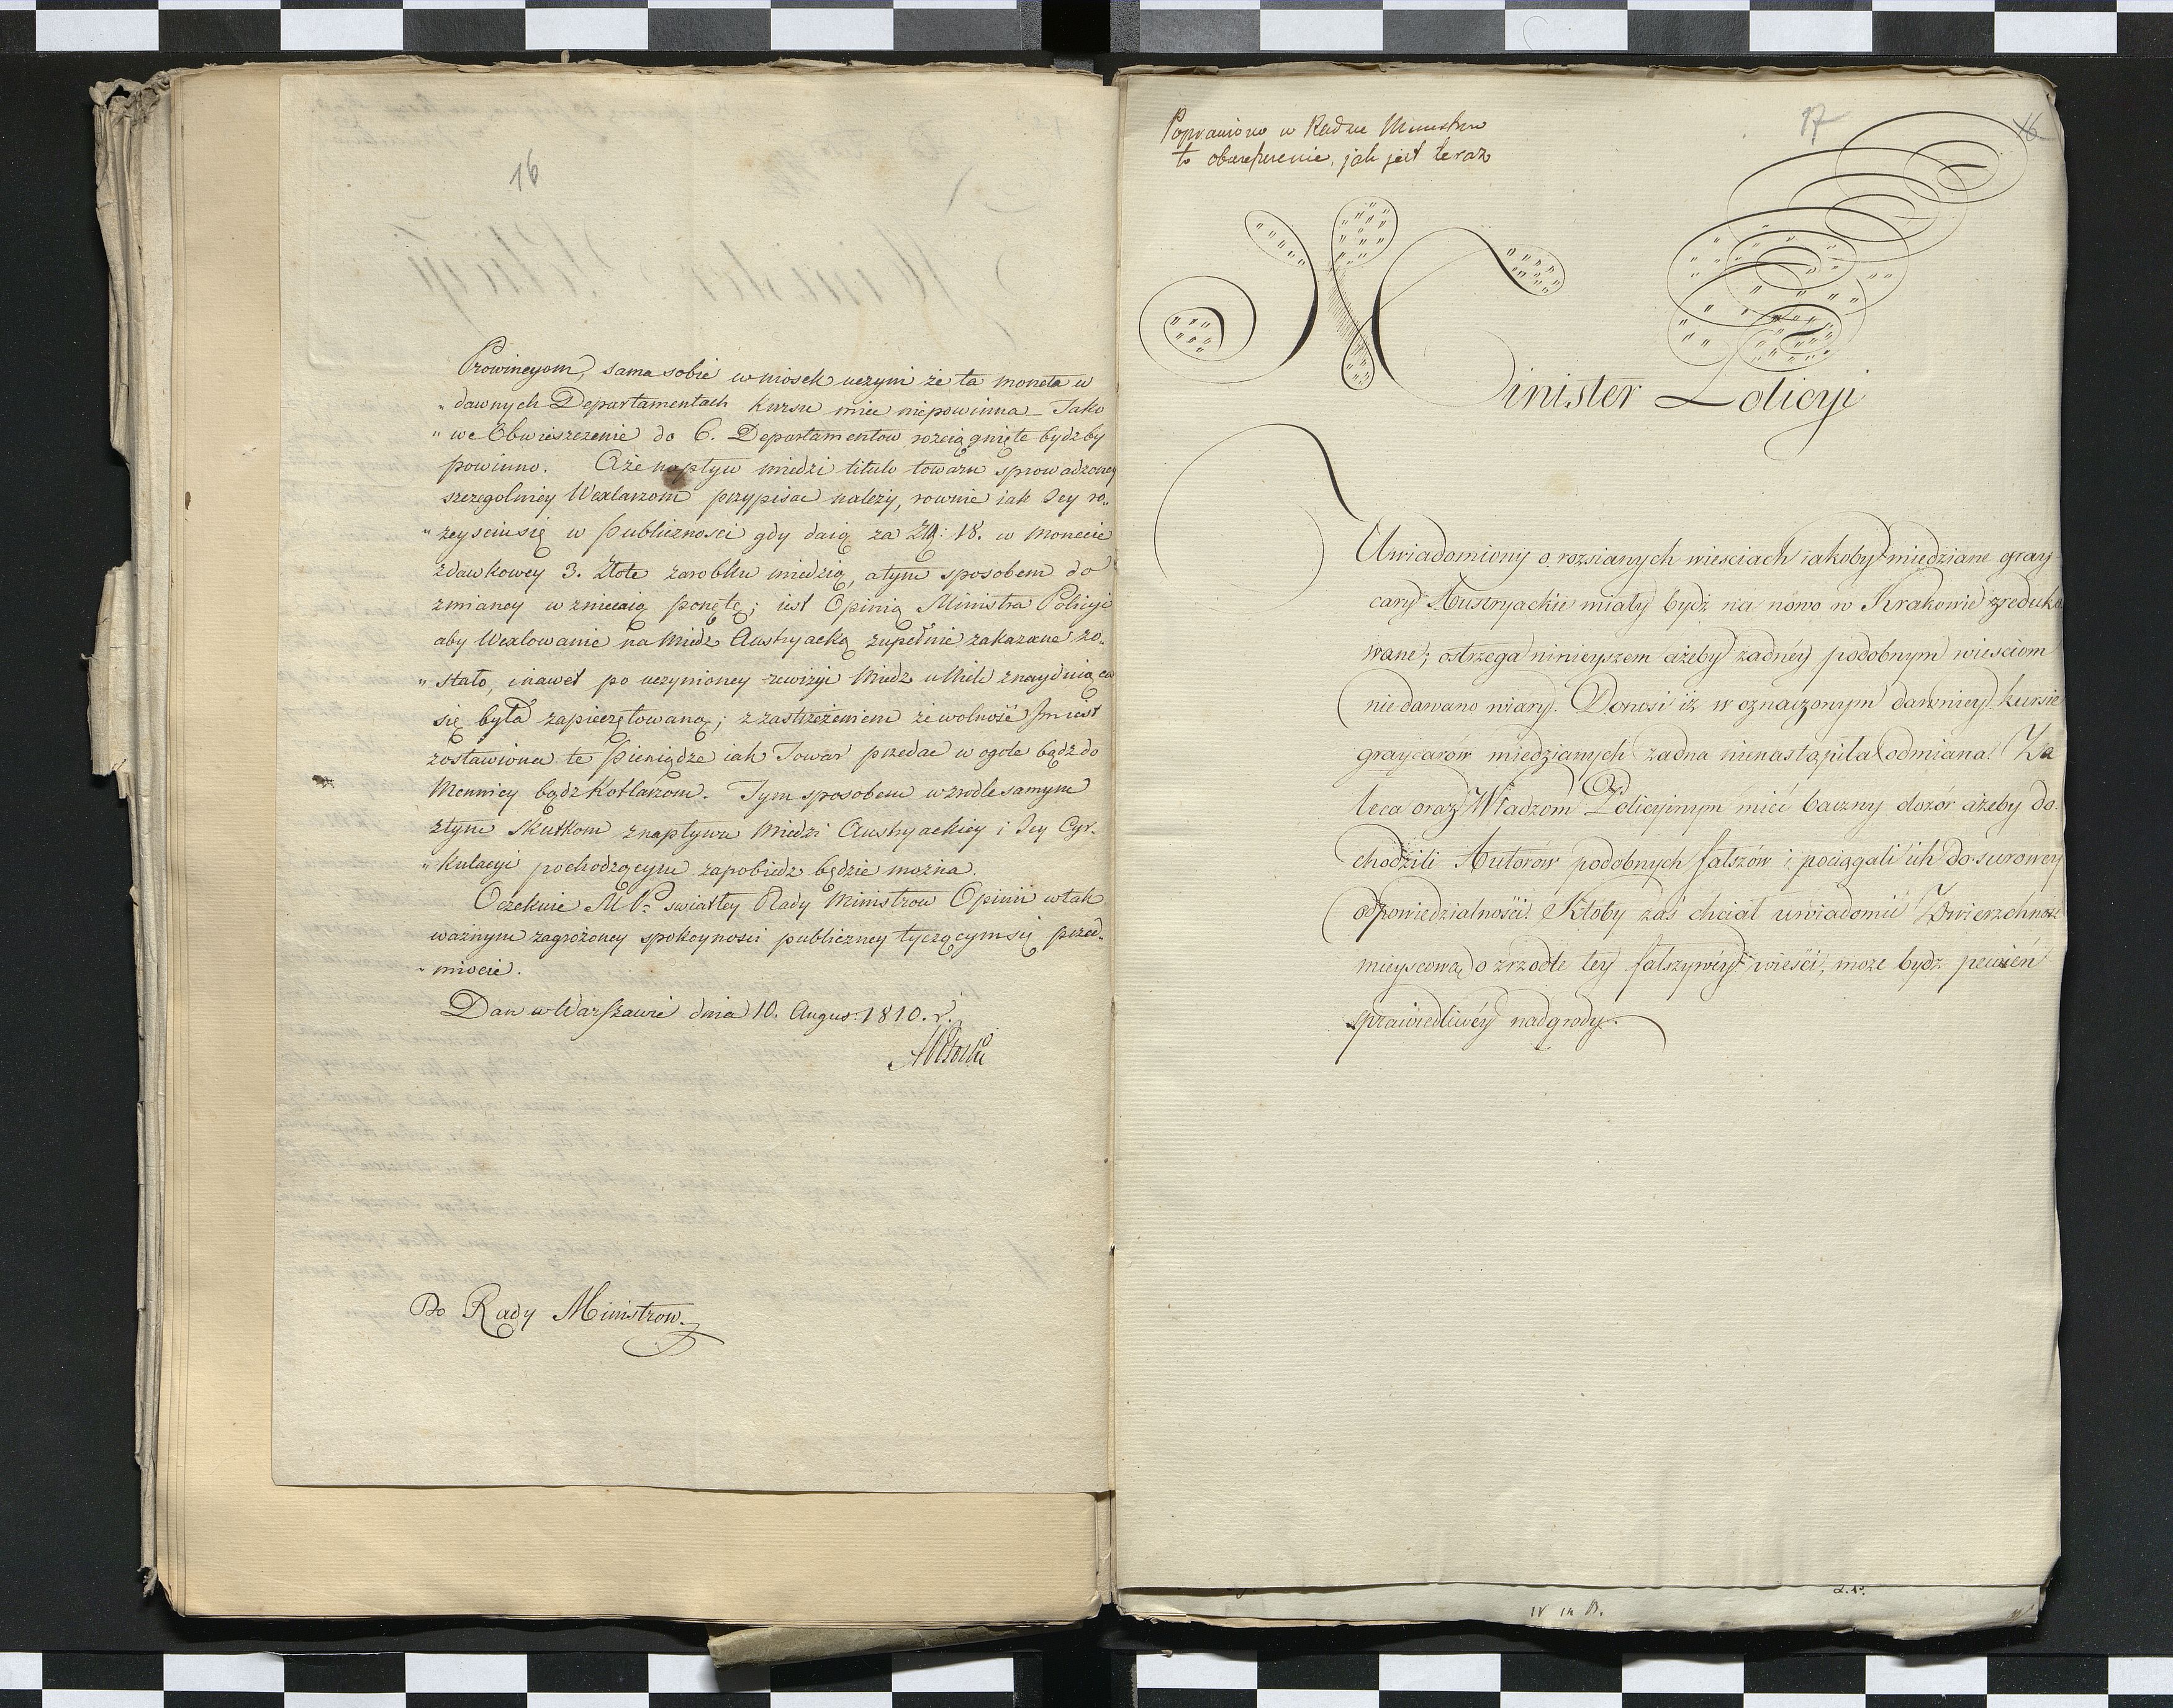 16
Prowincyom, sama sobie wniosek uczyni że ta moneta w
„ dawnych Departamentach kursu miec niepowinna – Tako
„ we Obwieszczenie do 6. Departamentow rozciągnięte bydzby
powinno. Aże napływ miedzi titulo towaru sprowadzoney
szczegolniey Wexlarzom przypisac należy, rownie iak Jey ro„
„ zeyscie się w publicznosci gdy daią za Zł: 18. w monecie
zdawkowey 3. Złote zarobku miedzią, atym sposobem do
zmianey wzniecaią ponętę; iest Opinią Ministra Policyi
aby Wexlowanie na Miedz Austryacką zupełnie zakazane zo„
„ stało, inawet po uczynioney rewizyi Miedz u Nich znayduiąca
się była zapieczętowaną; z zastrzeżeniem że wolność Im iest
zostawiona te pieniądze iak Towar przedac w ogole bądz do
Mennicy bądz Kotlarzom. Tym sposobem wzrodle samym
złym skutkom znapływu Miedzi Austryackiey i Jey Cyr„
„ kulacyi pochodzącym zapobiedz będzie można.
Oczekuie M P: swiatłey Rady Ministrow Opinii wtak
ważnym zagrożoney spokoynosci publiczney tyczącymsię przed„
„ miocie.
Dan w Warszawie dnia 10. Augus: 1810. r.
Do Rady Ministrow.
17
16
Poprawiono w Radzie Ministrow
to obwieszczenie, jak jest teraz
Minister Policyi
Uwiadomiony o rozsianych wieściach iakoby miedziane gray
cary Austryackie miały bydź na nowo w Krakowie zreduko
wane; ostrzega ninieyszem ażeby żadnéy podobnym wieściom
nie dawano wiary. Donosi iż w oznaczonym dawniey kursie
graycarów miedzianych żadna nienastąpiła odmiana. Za
leca oraz Władzom Policyinym mieć baczny dozór ażeby do
chodzili Autorow podobnych fałszów i pociągali ich do surowey
odpowiedzialności. Ktoby zaś chciał uwiadomić Zwierzchność
mieyscową o zrzodle tey fałszywéy wieści, może bydź pewień
sprawiedliwéy nadgrody.